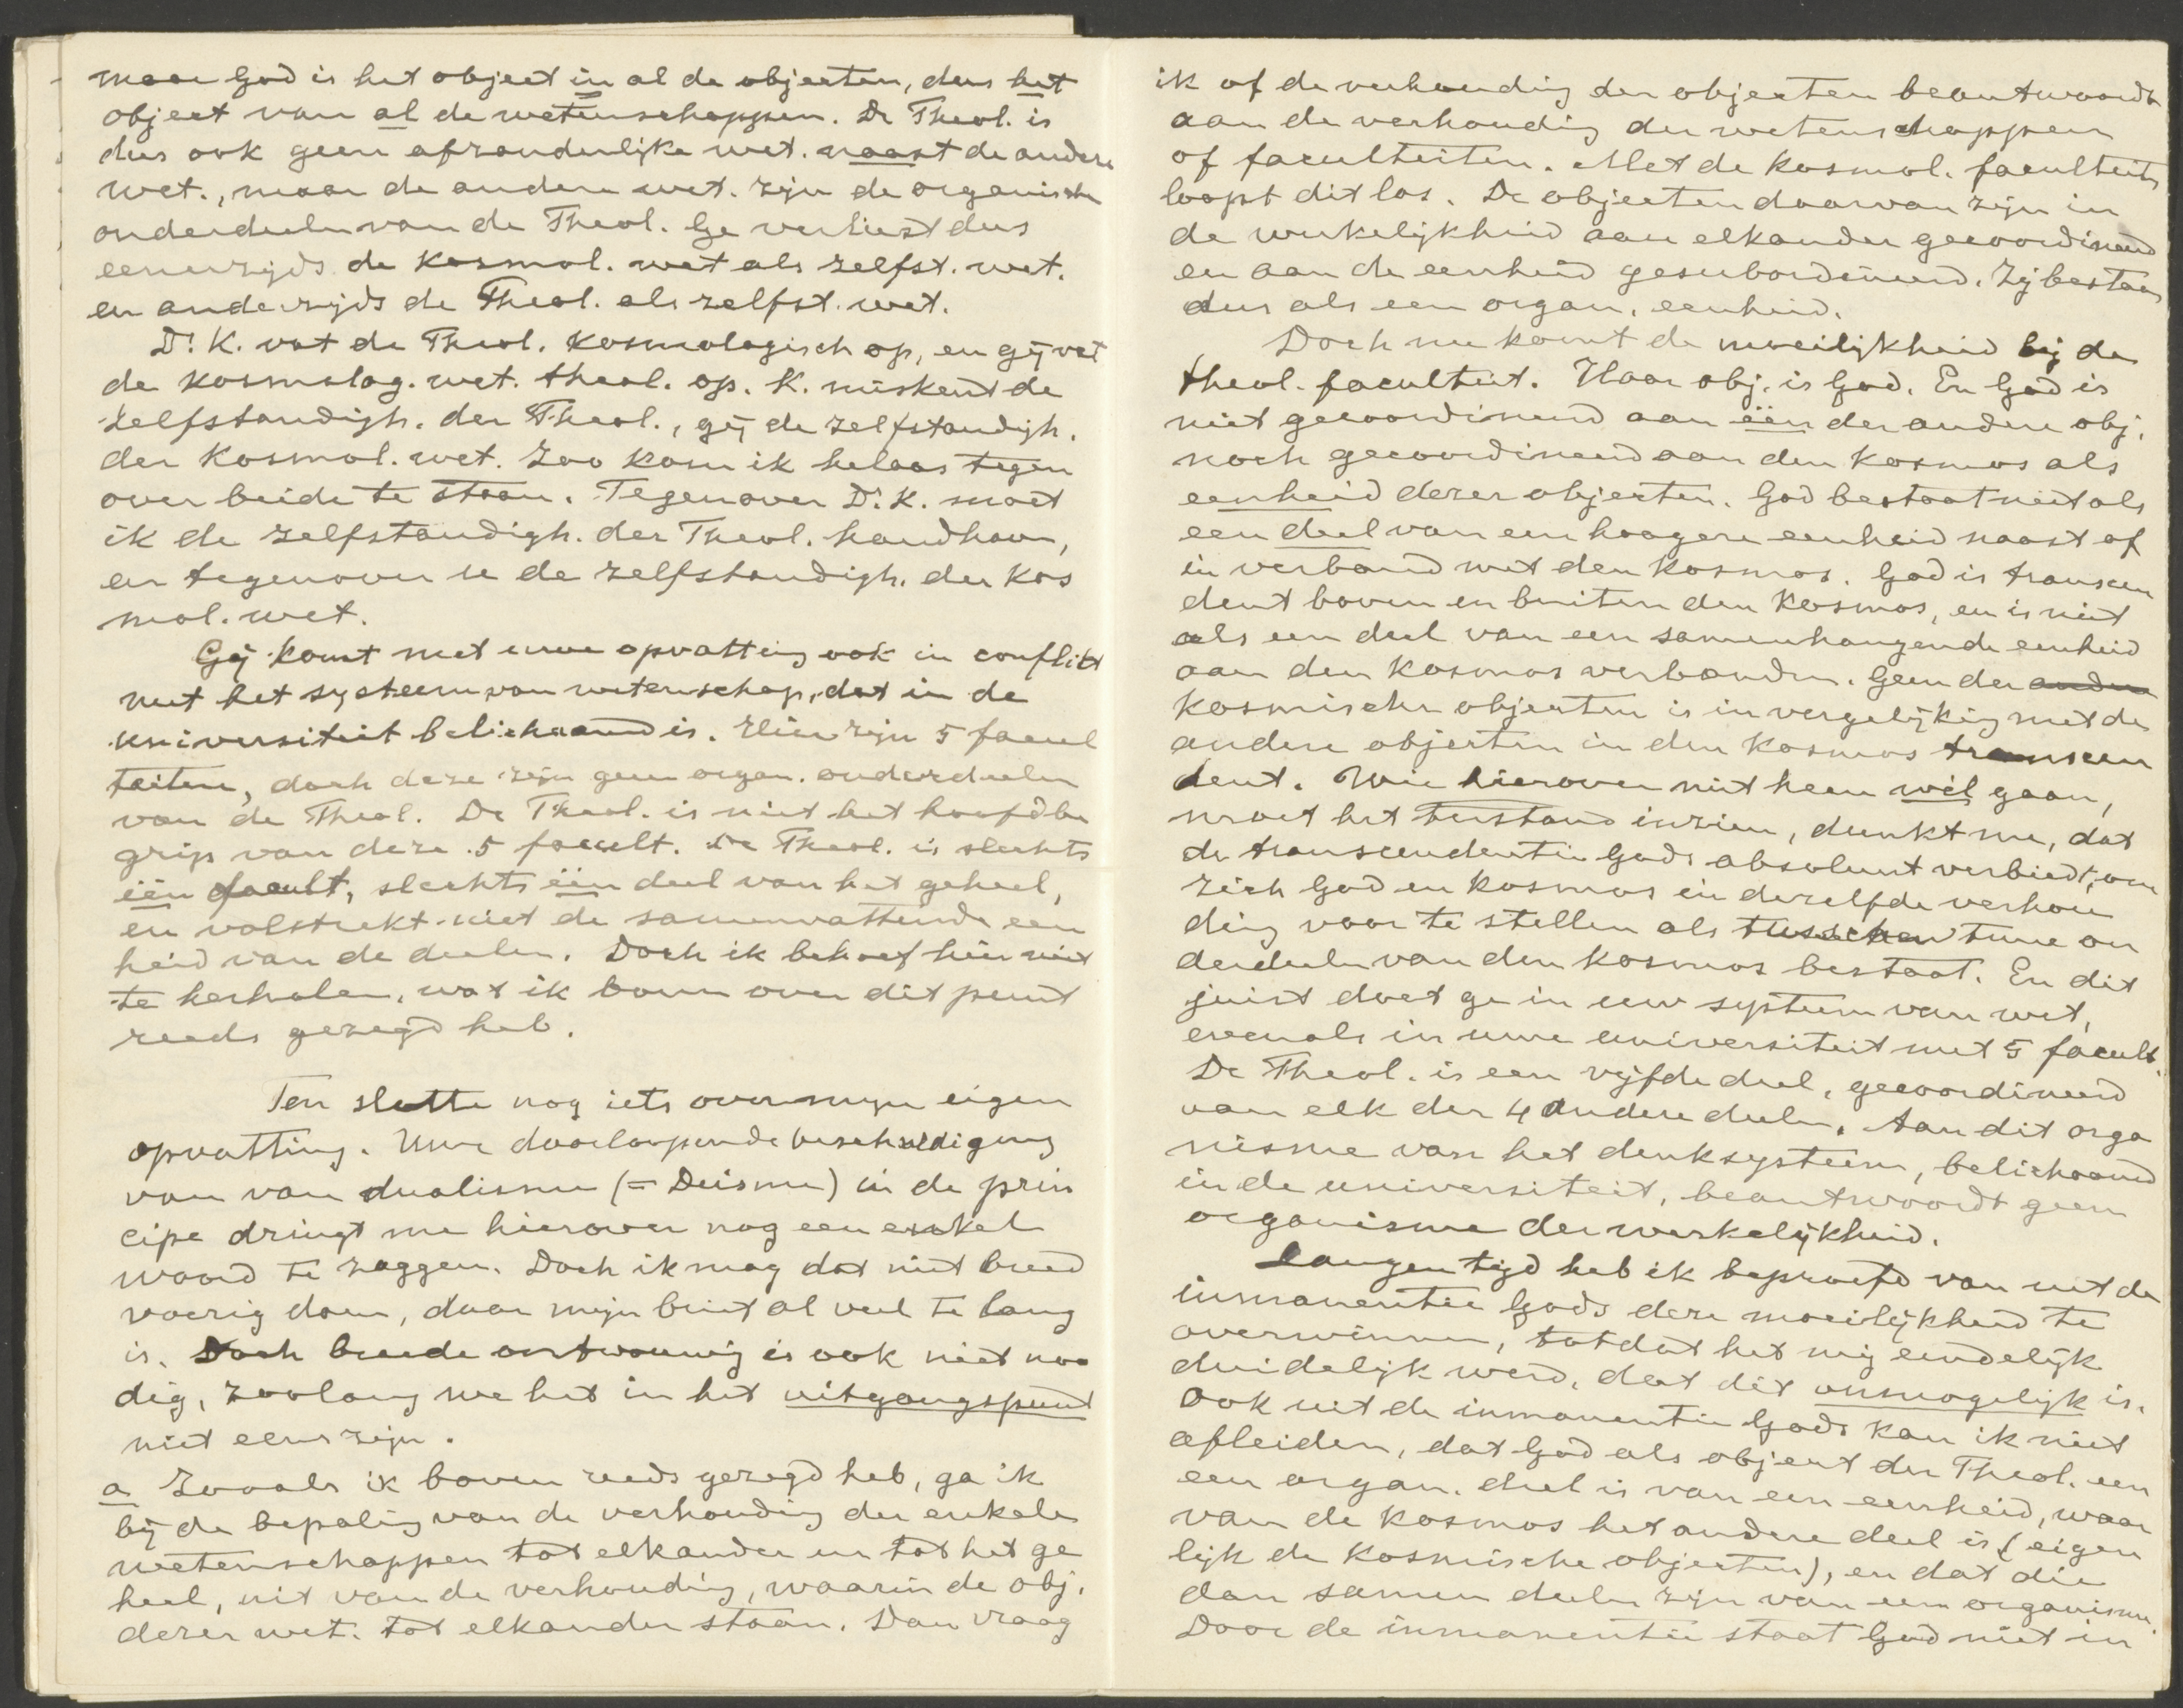 maar God is het object in al de objecten, dus het
object van al de wetenschappen. De Theol. is
dus ook geen afzonderlijke wet. naast de andere
wet., maar de andere wet. zijn de organische
onderdeelen van de Theol. Ge verliest dus
eenerzijds de kosmol. wet als zelfst. wet.
en anderzijds de Theol. als zelfst. wet.
Dr. K. vat de Theol. kosmologisch op, en gij vat
de kosmolog. wet. theol. op. K. miskent de
zelfstandigh. der Theol., gij de zelfstandigh.
der kosmol. wet. Zoo kom ik helaas tegen
over beide te staan. Tegenover Dr. K. moet
ik de zelfstandigh. der Theol. handhaven,
en tegenover u de zelfstandigh. der kos
mol. wet.
Gij komt met uwe opvatting ook in conflikt
met het systeem van wetenschap, dat in de
universiteit belichaamd is. Hier zijn 5 facul
teiten, doch deze zijn geen organ. onderdeelen
van de Theol. De Theol. is niet het hoofdbe
grip van deze 5 facult. De Theol. is slechts
één facult, slechts één deel van het geheel,
en volstrekt niet de samenvattende een
heid van de deelen. Doch ik behoef hier niet
te herhalen, wat ik boven over dit punt
reeds gezegd heb.
Ten slotte nog iets over mijn eigen
opvatting. Uwe doorloopende beschuldiging
van van dualisme (= Deisme) in de prin
cipe dringt me hierover nog een enkel
woord te zeggen. Doch ik mag dat niet breed
voerig doen, daar mijn brief al veel te lang
is. Doch breede ontvouwing is ook niet noo
dig, zoolang we het in het uitgangspunt
niet eens zijn.
a Zooals ik boven reeds gezegd heb, ga ik
bij de bepaling van de verhouding der enkele
wetenschappen tot elkander en tot het ge
heel, uit van de verhouding, waarin de obj.
dezer wet. tot elkander staan. Dan vraag
ik of de verhouding der objecten beantwoordt
aan de verhouding der wetenschappen
of faculteiten. Met de kosmol. faculteits
loopt dit los. De objecten daarvan zijn in
de werkelijkheid aan elkander gecoordineerd
en aan de eenheid gesubordineerd. Zij bestaan
dus als een organ. eenheid.
Doch nu komt de moeilijkheid bij de
theol. faculteit. Haar obj. is God. En God is
niet gecoordineerd aan één der andere obj.
noch gecoordineerd aan den kosmos als
eenheid dezer objecten. God bestaat niet als
een deel van een hoogere eenheid naast of
in verband met den kosmos. God is transcen
dent boven en buiten den kosmos, en is niet
als een deel van een samenhangende eenheid
aan den kosmos verbonden. Geen der andere
kosmische objecten is in vergelijking met de
andere objecten in den kosmos transcen
dent. Wie hierover niet heen wil gaan,
moet het terstond inzien, dunkt me, dat
de transcendentie Gods absoluut verbiedt, om
zich God en kosmos in dezelfde verhou
ding voor te stellen als tusschen twee on
derdeelen van den kosmos bestaat. En dit
juist doet ge in uw systeem van wet,
evenals in uwe universiteit met 5 facult.
De Theol. is een vijfde deel, gecoordineerd
van elk der 4 andere deelen. Aan dit orga
nisme van het denksysteem, belichaamd
in de universiteit, beantwoordt geen
organisme der werkelijkheid.
Langen tijd heb ik beproefd van uit de
inmanentie Gods deze moeilijkheid te
overwinnen, totdat het mij eindelijk
duidelijk werd, dat dit onmogelijk is.
Ook uit de inmanentie Gods kan ik niet
afleiden, dat God als object der Theol. een
een organ. deel is van een eenheid, waar
van de kosmos het andere deel is (eigen
lijk de kosmische objecten), en dat die
dan samen deelen zijn van een organisme.
Door de inmanentie staat God niet in